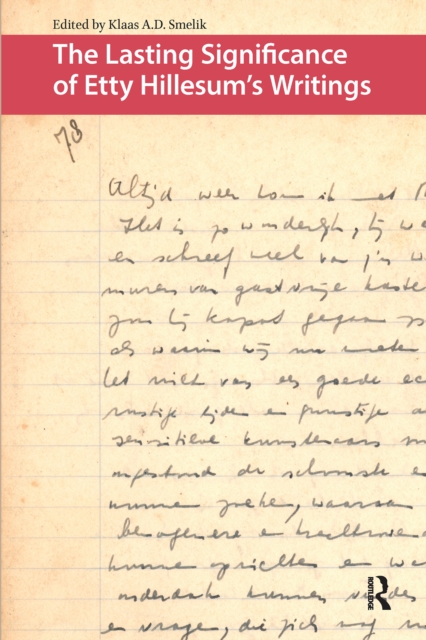 Edited by Klaas A.D. Smelik
The Lasting Significance
of Etty Hillesum's Writings
78
Altijd weer kom ik met
Het is zo wonderlijk, hij
en schreef veel van z'n
muren van gastvrije
zou kapot gegaan
als waarin wij nu moeten
het niet van een goede
rustige tijden en gunstige
sensitieve kunstenaars
ongestoord de schoonste
zoeken, waaraan
bewogener en
kunnen oprichten en
onderdak kunnen
en vragen, die zich nog
ROUTLEDGE